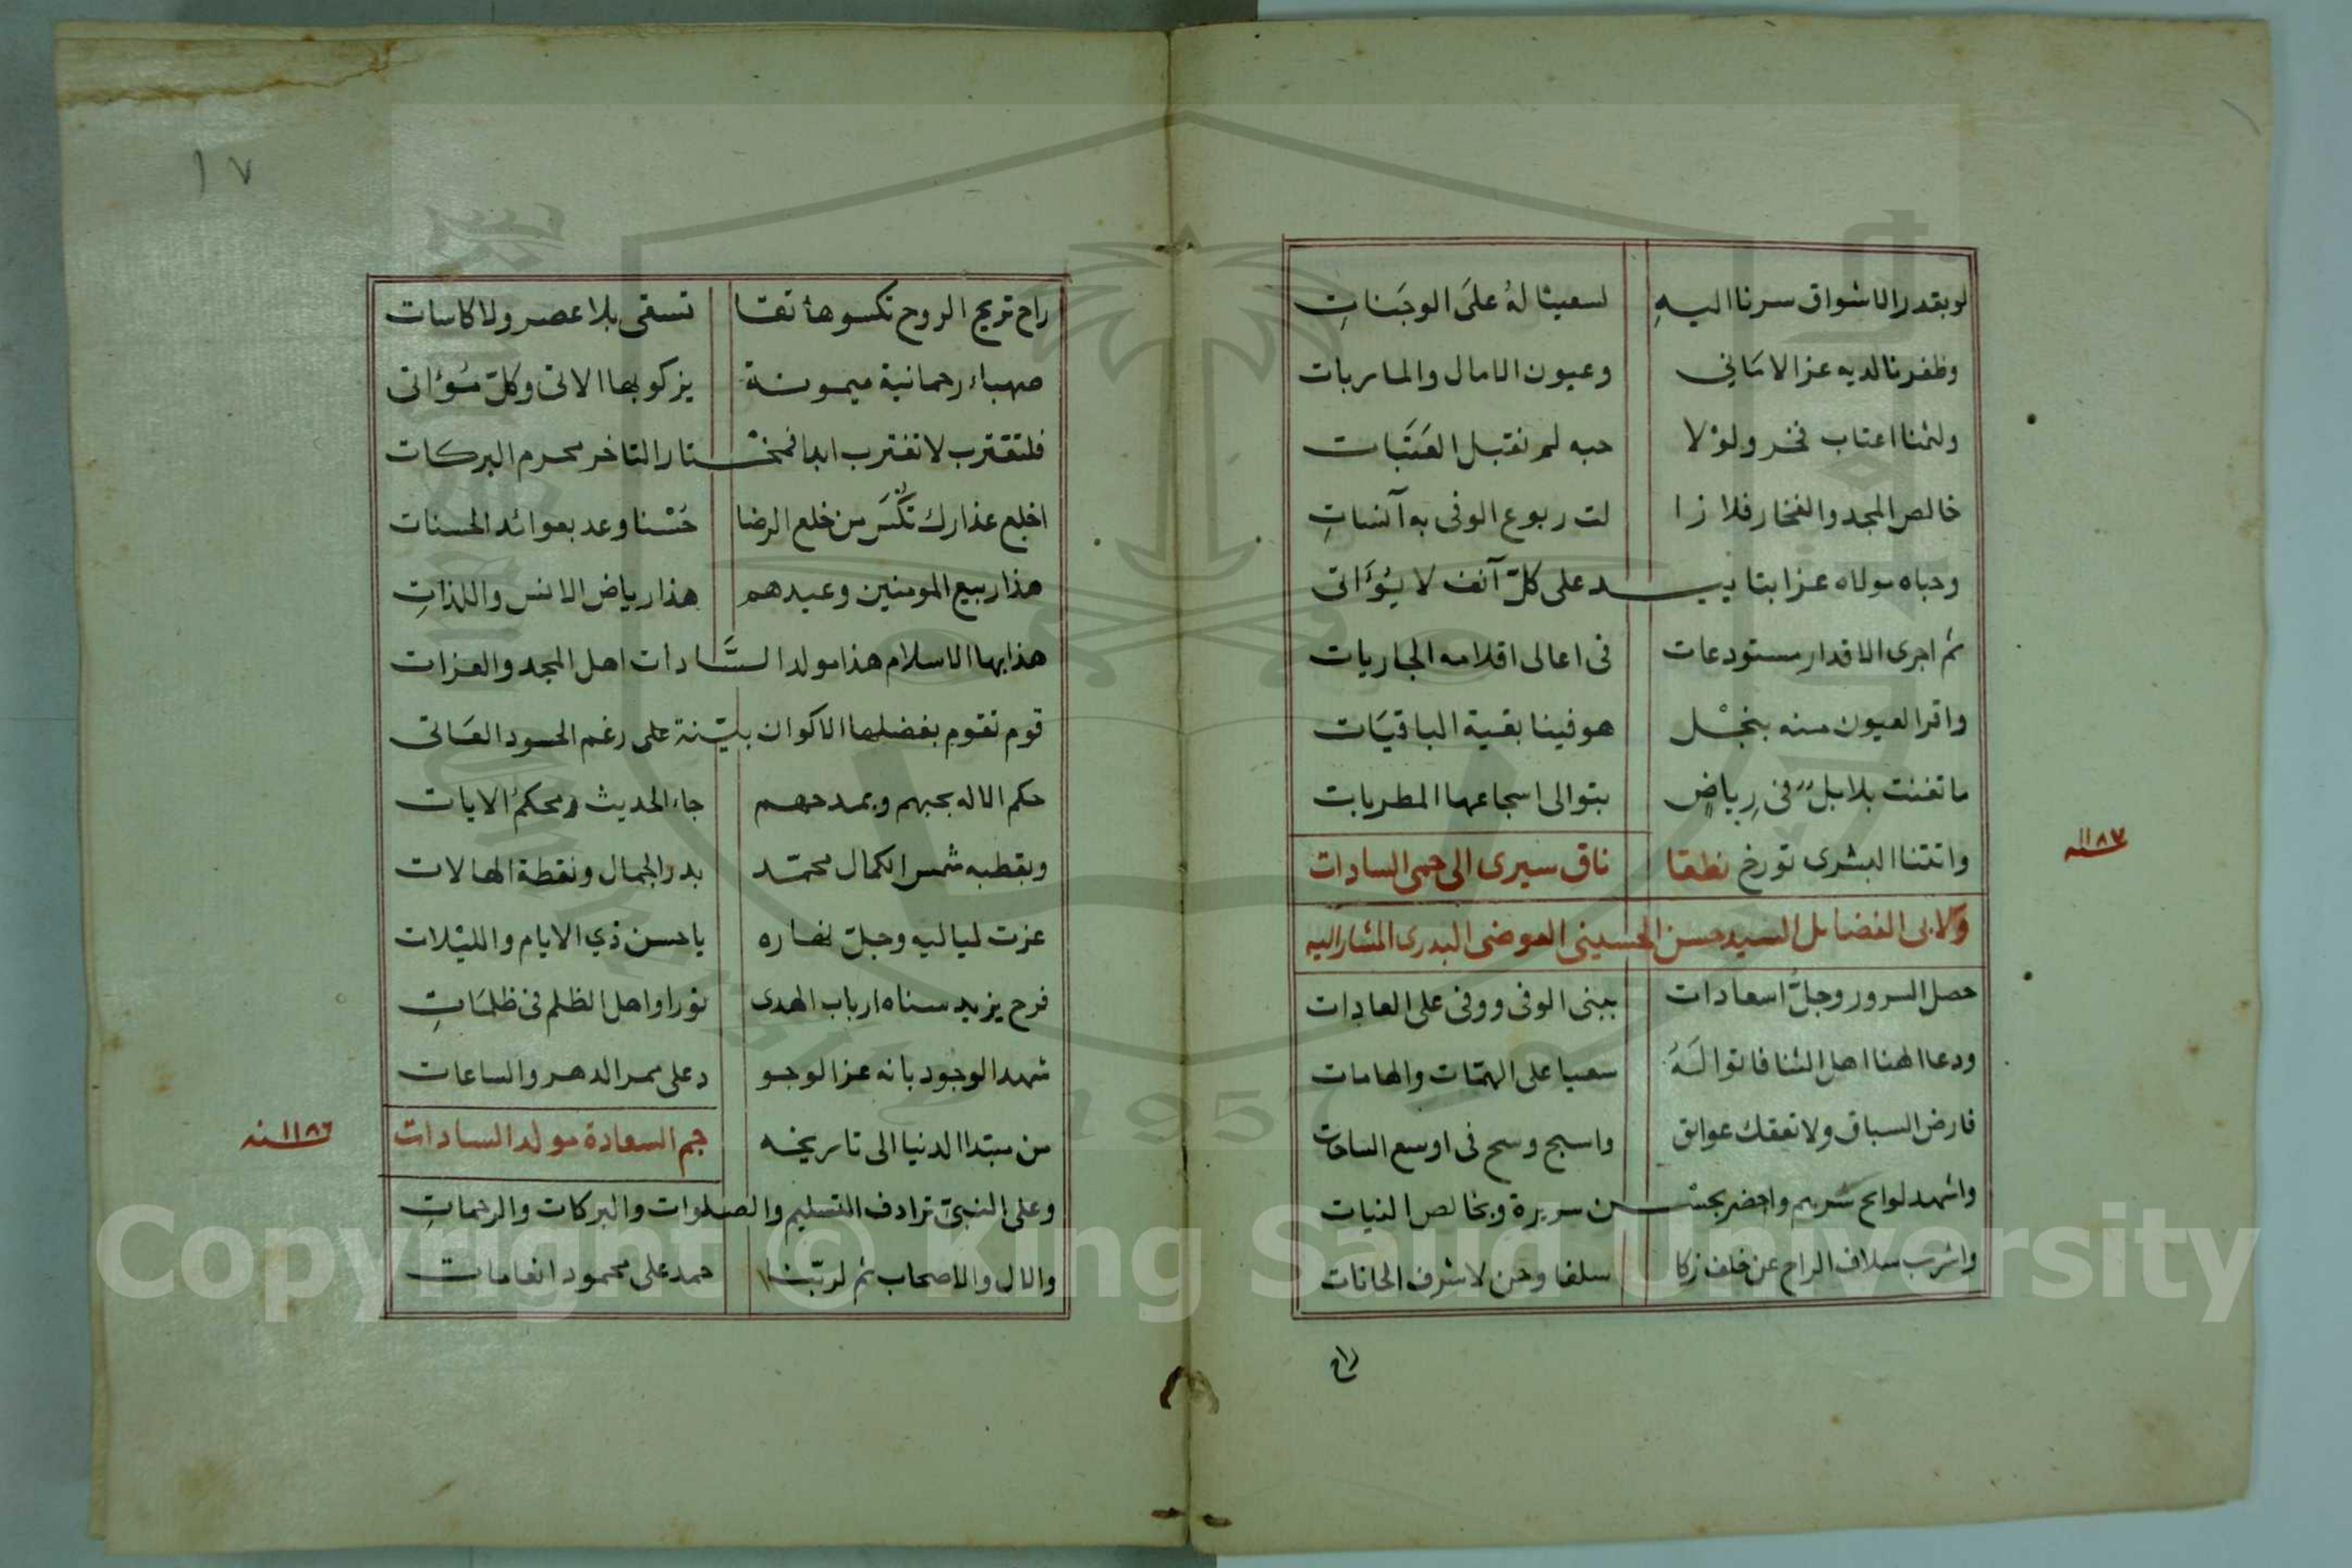 لو بقدر الاشواق سرنا اليهِ لسعينا لهُ علَى الوجَناتِ
وظفرنا لديه عز الامَاني وعيون الامال والماربات
ولثمنا اعتاب فخر ولوْلا حبه لم نقبل العَتَبات
خالص المجد والفخار فلا زا لت ربوع الوفى به آنساتِ
وحباه مولاه عزا بتاييـــد على كلّ آنف لا يُؤَاتى
ثم اجرى الاقدار مستودعات فى اعالى اقلامه الجاريات
واقر العيون منه بنجْل هو فينا بقية الباقيَات
ما تغنت بلابلٌ فى رِياضٍ بتوالى اسجاعها المطربات
واتتنا البشرى تورخ نطقا ناق سيرى الى حمى السادات
١١٨٧ سنه
ولابى الفضايل السيد حسن الحسينى العوضى البدرى المشار اليه
حصل السرور وجلَّ اسعادات ببنى الوفى ووفى على العادات
ودعا الهنا اهل الثنا فاتوا لَهُ سعيا على الهمّات والهامات
فارض السباق ولا تعقك عوايق واسبح وسح فى اوسع الساحات
واشهد لوايح سرهم واحضر بحسْـــن سريرة وبخالص النيات
واشرب سلاف الراح عن خلف زكا سلفا وحن لاشرف الحانات
راح
١٧
راح تريح الروح تكسوها تقا تسقى بلا عصر ولا كاسات
صهباء رحمانية ميمونة يزكو بها الاتى وكلّ مُؤاتى
فلتقترب لا تغترب ابدا فمخْـــتار التاخر محرم البركات
اخلع عذارك تُكْسَ من خلع الرضا حُسْنا وعد بعوائد الحسنات
هذا ربيع المومنين وعيدهم هذا رياض الانس واللذاتِ
هذا بها الاسلام هذا مولد السَّــادات اهل المجد والعزات
قوم تقوم بفضلها الاكوان بيّنة على رغم الحسود العَاتى
حكم الاله بحبهم وبمدحهم جاء الحديث ومحكمُ الايات
وبقطبه شمس الكمال محمّد بدر الجمال ونقطة الهالات
عزت لياليه وجلّ نهاره ياحسن ذي الايام والليْلات
فرح يزيد سناه ارباب الهدى نورا واهل الظلم فى ظلمَاتِ
شهد الوجود بانه عز الوجو د على ممر الدهر والساعات
من مبتدا الدنيا الى تاريخه جم السعادة مولد السادات
١١٨٦ سنه
وعلى النبىّ ترادف التسليم والصلوات والبركات والرحماتِ
والال والاصحاب ثم لربّنا حمد على محمود انعامات
Copyright © King Saud University
1957